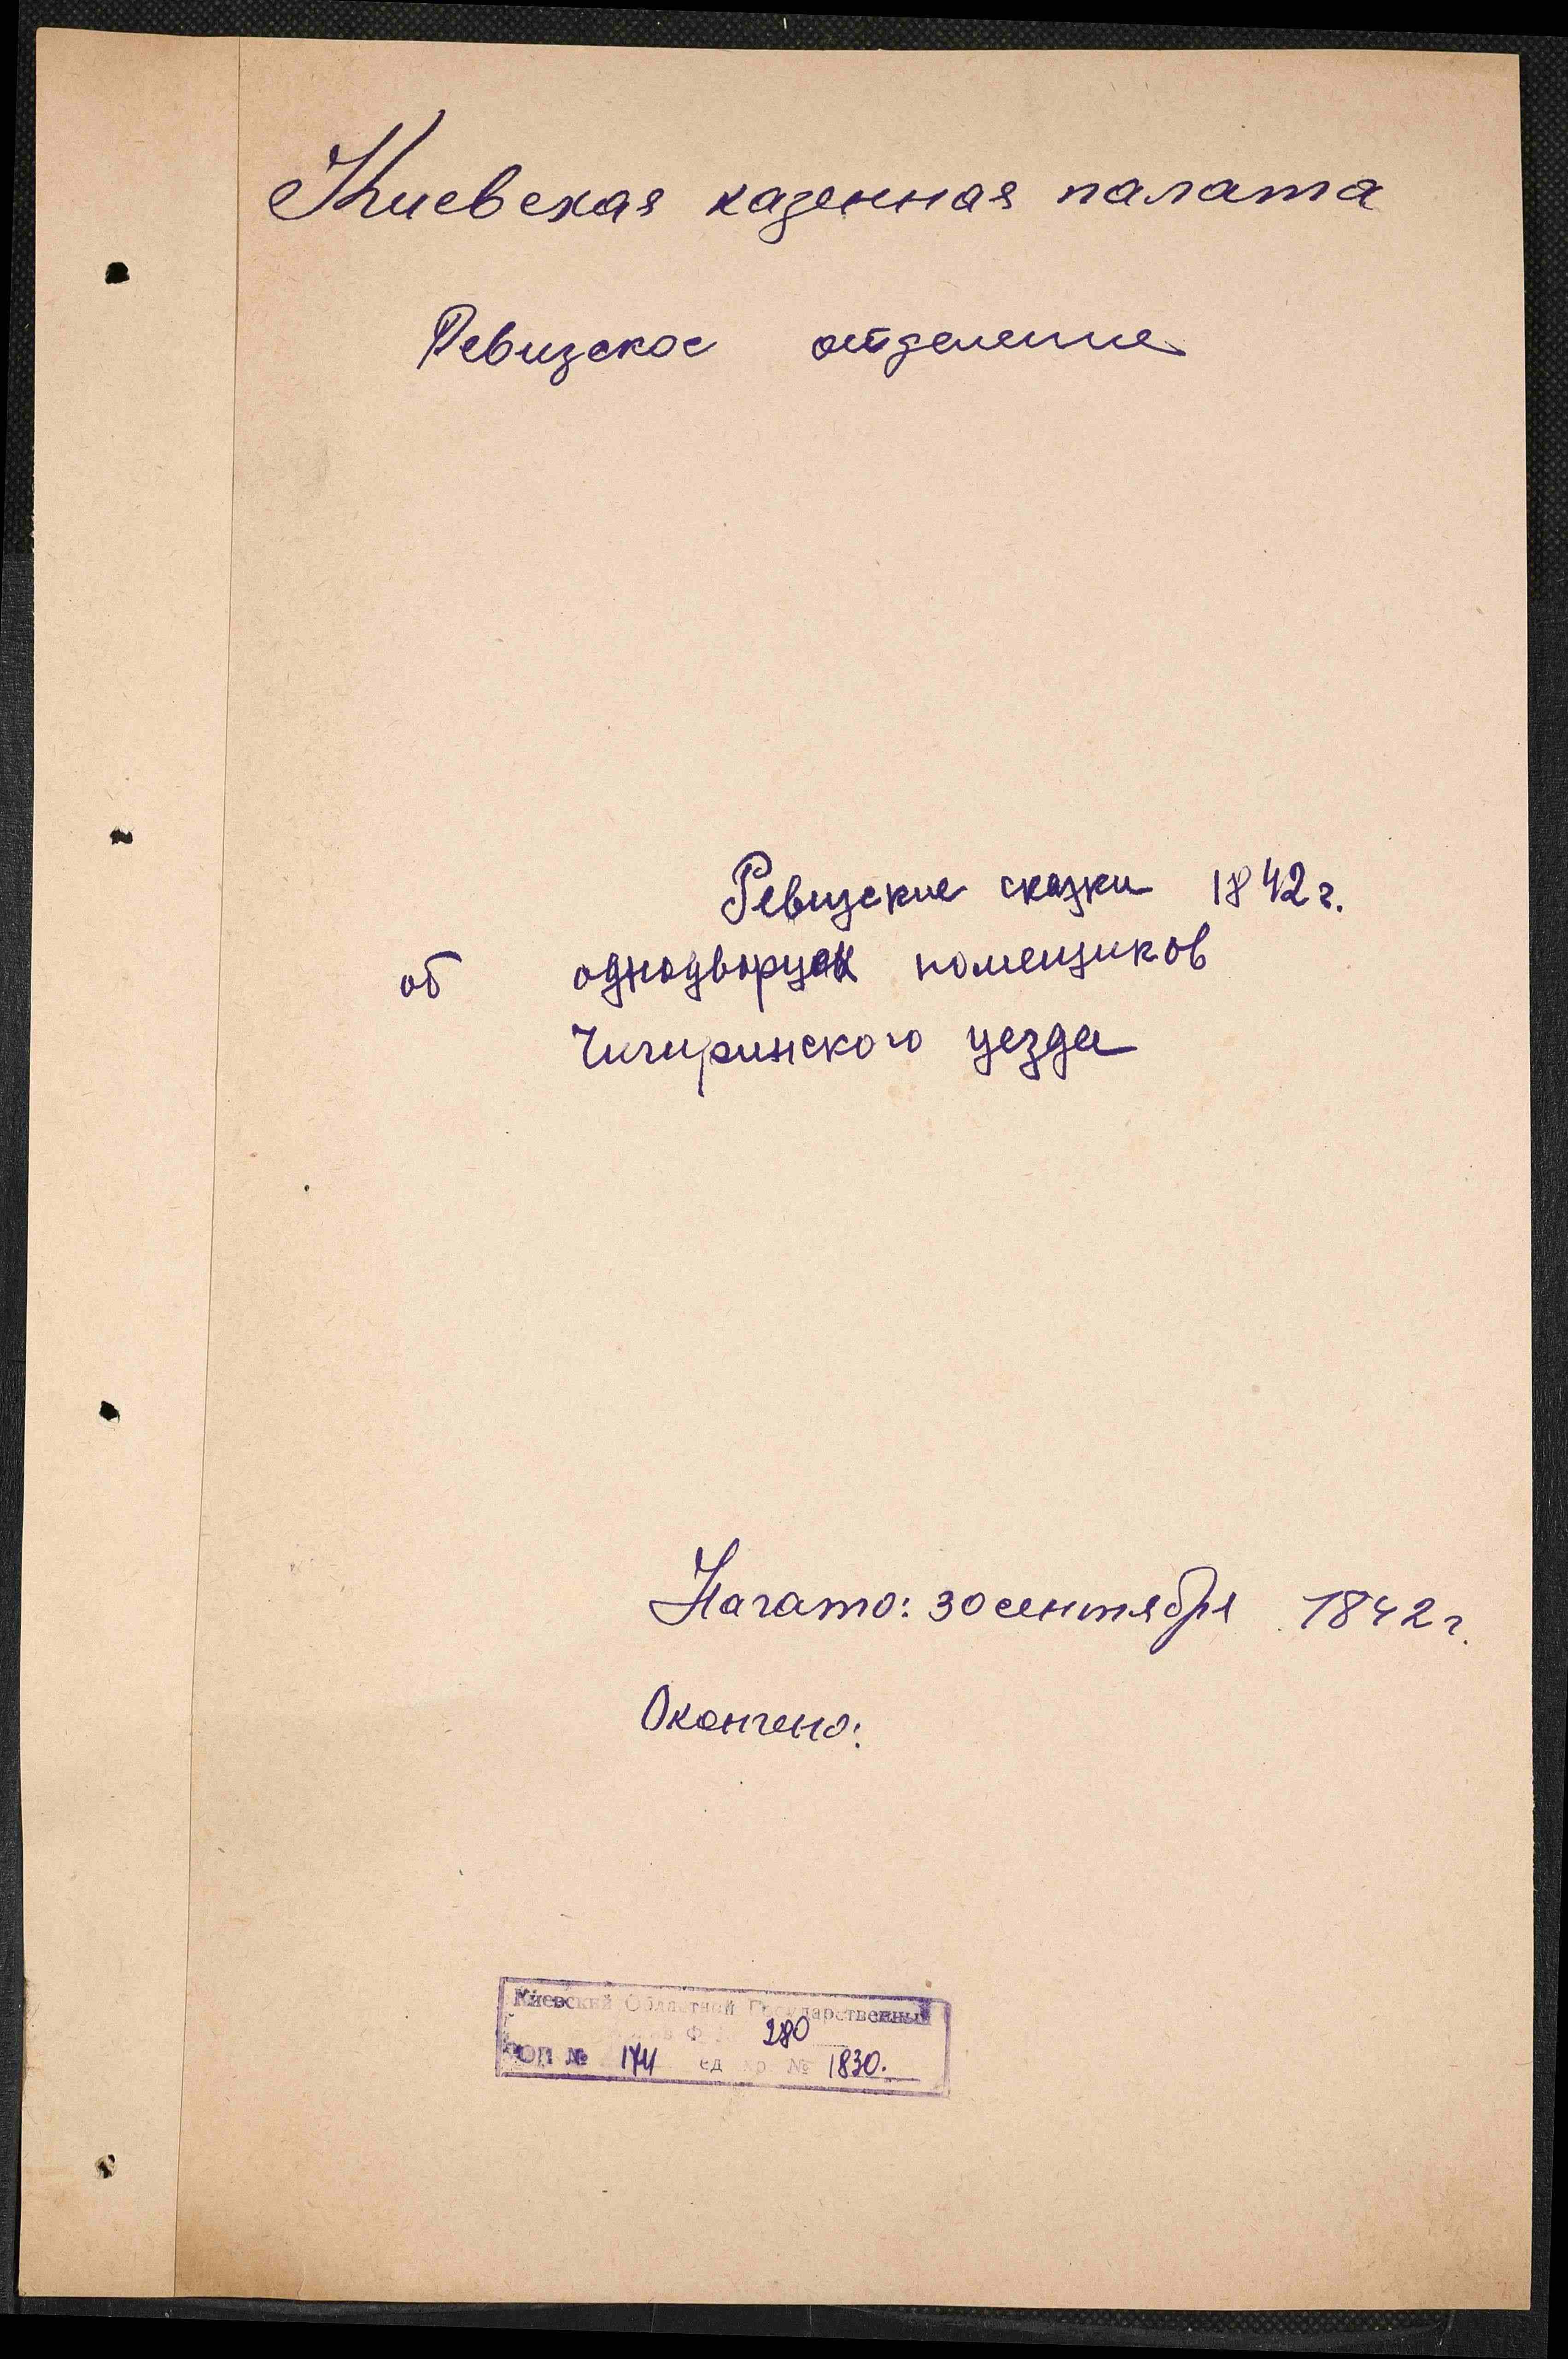 Киевская казенная палата
Ревизское отделение
Ревизские сказки 1842 г.
об однодворцах помещиков
Чигиринского уезда
Начато: 30 сентября 1842 г.
Окончено:
Киевский Областной Государственный
Ф 280
ОП № 174 ед хр № 1830.